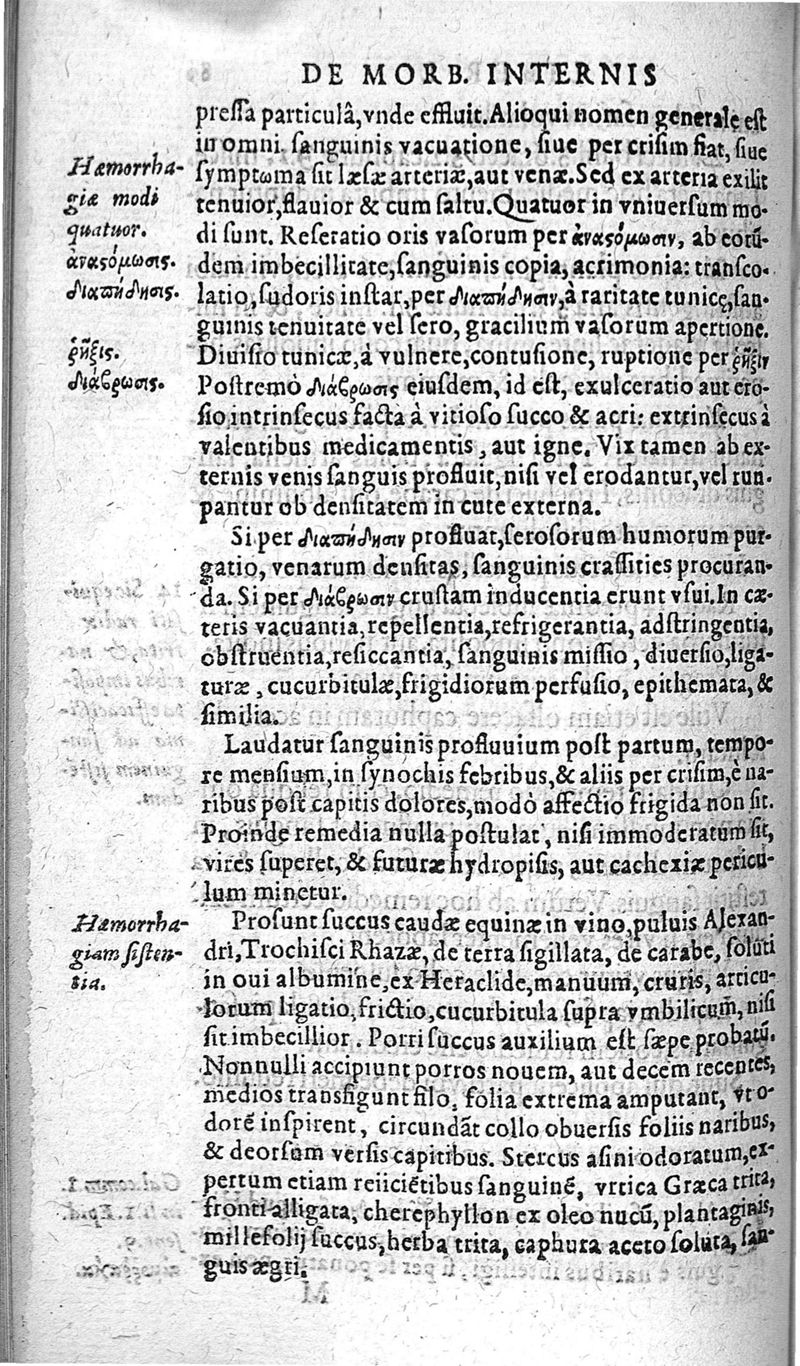 DE MORB. INTERNIS
preſſa particulâ,vnde effluit.Alioqui nomen generale eſt
in omni ſanguinis vacuatione, ſiue per criſim fiat, ſiue
ſymptoma ſit læſæ arteriæ,aut venæ.Sed ex arteria exilit
tenuior,flauior & cum ſaltu.Quatuor in vniuerſum mo-
di ſunt. Reſeratio oris vaſorum per ἀναϛόμωσιν, ab eorū-
dem imbecillitate,ſanguinis copia, acrimonia: tranſco-
latio,ſudoris inſtar,per διαπήδησιν,à raritate tunicę,ſan-
guinis tenuitate vel ſero, gracilium vaſorum apertione.
Diuiſio tunicæ,à vulnere,contuſione, ruptione per ῥῆξιν
Poſtremò διάβρωσις eiuſdem, id eſt, exulceratio aut ero-
ſio intrinſecus facta à vitioſo ſucco & acri: extrinſecus à
valentibus medicamentis, aut igne. Vix tamen ab ex-
ternis venis ſanguis profluit,niſi vel erodantur,vel rum-
pantur ob denſitatem in cute externa.
Si per διαπήδησιν profluat,ſeroſorum humorum pur-
gatio, venarum denſitas, ſanguinis craſſities procuran-
da. Si per διάβρωσιν cruſtam inducentia erunt vſui.In cæ-
teris vacuantia,repellentia,refrigerantia, adſtringentia,
obſtruentia,reſiccantia, ſanguinis miſſio, diuerſio,liga-
turæ, cucurbitulæ,frigidiorum perfuſio, epithemata, &
ſimilia.
Laudatur ſanguinis profluuium poſt partum, tempo-
re menſium,in ſynochis febribus,& aliis per criſim,è na-
ribus poſt capitis dolores,modò affectio frigida non ſit.
Proinde remedia nulla poſtulat, niſi immoderatum ſit,
vires ſuperet, & futuræ hydropiſis, aut cachexiæ pericu-
lum minetur.
Proſunt ſuccus caudæ equinæ in vino,puluis Alexan-
dri,Trochiſci Rhazæ, de terra ſigillata, de carabe, ſoluti
in oui albumine,ex Heraclide,manuum, cruris, articu-
lorum ligatio,frictio,cucurbitula ſupra vmbilicum, niſi
ſit imbecillior. Porri ſuccus auxilium eſt ſæpe probatū.
Nonnulli accipiunt porros nouem, aut decem recentes,
medios transfigunt filo, folia extrema amputant, vt o-
dorē inſpirent, circundāt collo obuerſis foliis naribus,
& deorſum verſis capitibus. Stercus aſini odoratum,ex-
pertum etiam reiiciētibus ſanguinē, vrtica Græca trita,
fronti alligata, cherephyllon ex oleo nucū, plantaginis,
millefolij ſuccus,herba trita, caphura aceto ſoluta, ſan-
guis ægri.
Hæmorrha-
giæ modi
quatuor.
ἀναϛόμωσις.
διαπήδησις.
ῥῆξις.
διάβρωσις.
Hæmorrha-
giam ſiſten-
tia.